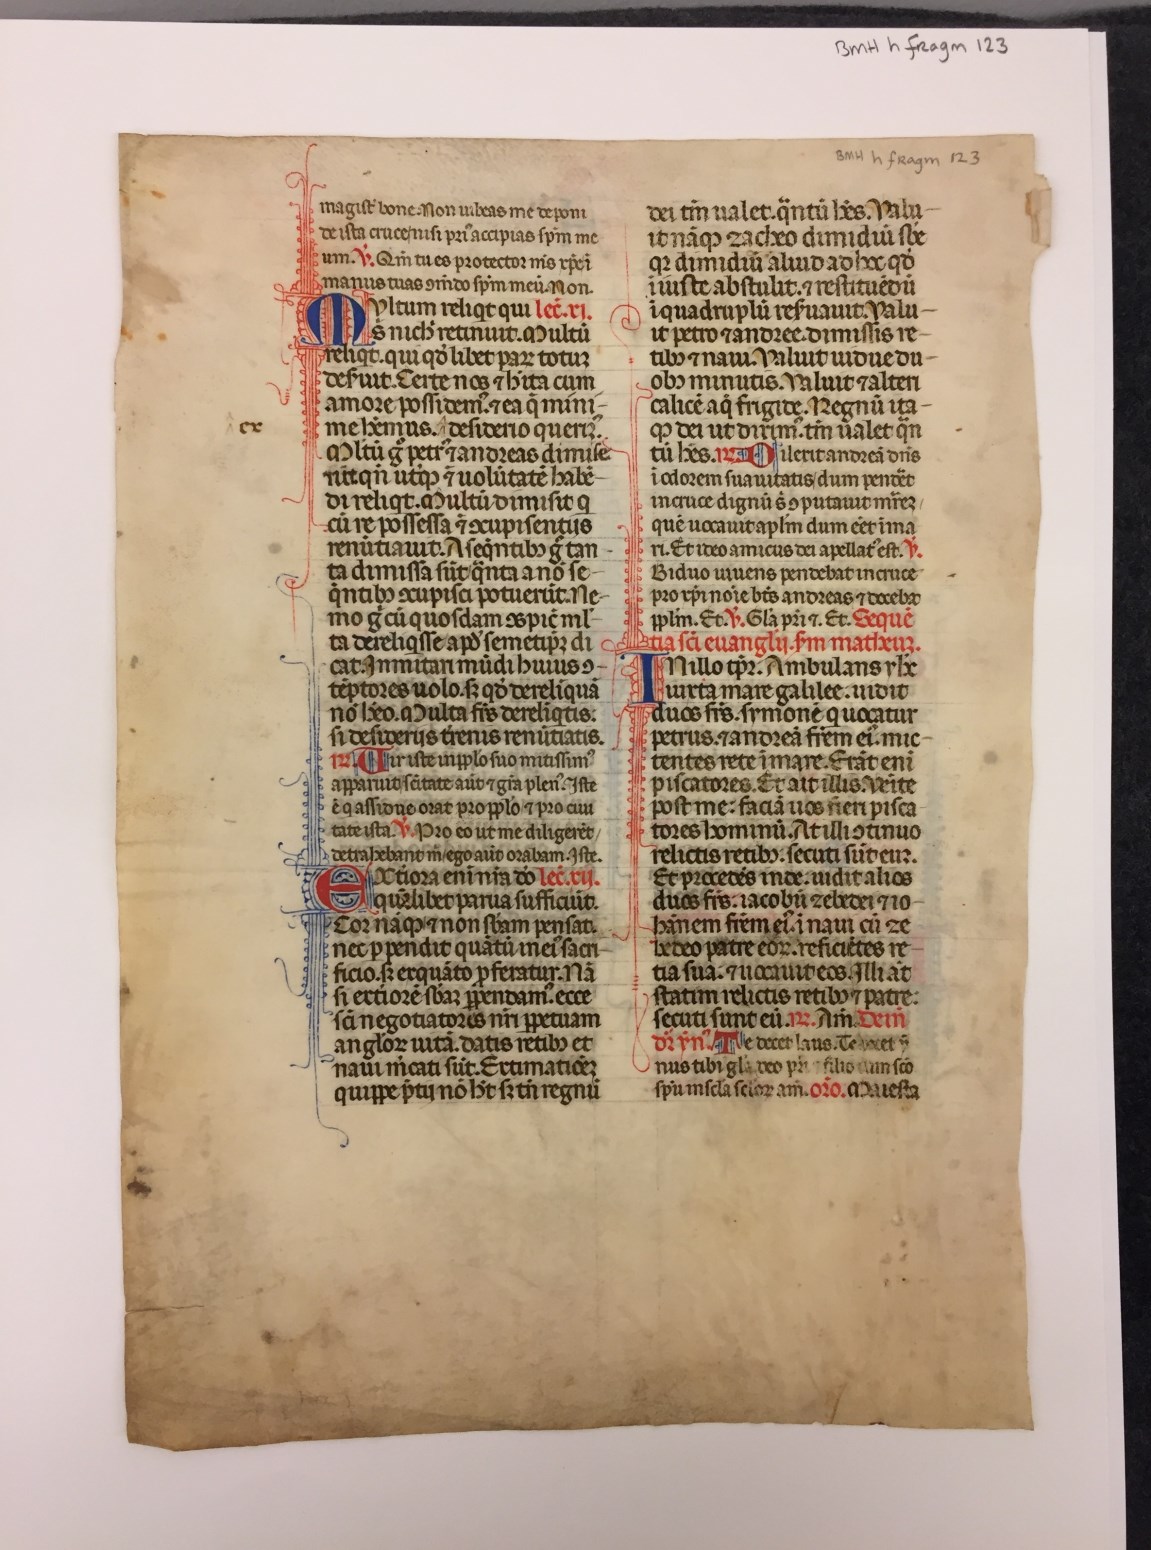 BMH h fragm 123
BMH h fragm 123
magist̄ bone. Non iubeas me deponi
de ista cruce, nisi pri᷒ accipias sp̄m me
um. V̄. Qm̄ tu es protector m̄s xp̄e ī
manus tuas ꝯm̄do sp̄m meū. Non.
Multum reliq̄t qui lec̄. xi.
s̄ nich̄ retinuit. Multū
reliq̄t. qui qd̄ libet parꝝ totuꝝ
des̄uit. Certe nos ⁊ h̄ita cum
amore possidem᷒. ⁊ ea q̄ mini-
me hēmus. desiderio querim᷒.
ex
Multū ḡ petr᷒ ⁊ andreas dimise
rūt qn̄ ut̄qꝫ ēt uolūtatē habē-
di reliq̄t. Multū dimisit q
cū re possessa ēt ꝯcupiscentijs
renūtiauit. A seq̄ntibꝫ ḡ tan
ta dimissa sūt q̄nta a nō se-
q̄ntibꝫ ꝯcupisci potuerūt. Ne-
mo ḡ cū quosdam ꝯspic̄ ml̄-
ta dereliqsse apd̄ semetipꝝ di
cat. Inmitari mūdi huius ꝯ-
tēptores uolo. sꝫ qd̄ derelīquā
nō h̄eo. Multa frs̄ dereliqtis:
si desiderijs t̄renis renūtiatis.
R̄. Vir iste in pp̄lo suo mitissim᷒
apparuit, sc̄itate aūt ⁊ gr̄a plen᷒. Iste
ē q assidue orat pro pp̄lo ⁊ pro ciui
tate ista. V̄. Pro eo ut me diligerēt,
detrahebant m̄, ego aūt orabam. Iste.
Extiora eni nr̄a dō lec̄. xii.
quālibet parua sufficiūt.
Cor nāqꝫ ⁊ non sb̄am pensat.
nec ꝑpendit quātū in ei᷒ sacri-
ficio. sꝫ ex quāto ꝓferatur. Nā
si extiorē sb̄aꝫ ꝑpendam᷒. ecce
sc̄i negotiatores nr̄i ꝑpetuam
angloꝝ uitā. datis retibꝫ et
naui m̄cati sūt. Extimatioēꝫ
quippe p̄tij nō h̄t sꝫ tn̄ regnū
dei tm̄ ualet. q̄ntū hēs. Valu-
it nāqꝫ zacheo dimidiū sb̄e
qꝛ dimidiū aliud ad hoc qd̄
iniuste abstulit. ⁊ restituēdū
ī quadruplū res̄uauit. Valu-
it petro ⁊ andree. dimissis re-
tibꝫ ⁊ naui. Valuit uidue du-
obꝫ minutis. Valuit ⁊ alteri
calicē aq̄ frigide. Regnū ita-
qꝫ dei ut dixim᷒. tm̄ ualet qn̄
tū hēs. R̄. Dilexit andreā dn̄s
ī odorem suauitatis, dum pendēt
in cruce dignū s̄ ꝯputauit mr̄eꝫ,
quē uocauit ap̄lm dum eēt ī ma
ri. Et ideo amicus dei apellat᷒ est. V̄.
Biduo uiuens pendebat in cruce
pro xp̄i noīe bt̄s andreas ⁊ docebat
pp̄lm. Et. V̄. Gl̄a pr̄i ⁊. Et. Sequē
tia sc̄i euanglīj. s̄m matheuꝫ.
In illo tp̄r. Ambulans yhc̄
iuxta mare galilee. uidit
duos frs̄. symonē q uocatur
petrus. ⁊ andreā frēm ei᷒. mic-
tentes rete ī mare. Erāt eni
piscatores. Et ait illis. Venite
post me: faciā uos fieri pisca-
tores hominū. At illi ꝯtinuo
relictis retibꝫ. secuti sūt euꝫ.
Et procedēs inde. uidit alios
duos frs̄. iacobū zebedei ⁊ io-
hānem frēm ei᷒. ī naui cū ze
bedeo patre eoꝝ. reficiētes re-
tia sua. ⁊ uocauit eos. Illi aūt
statim relictis retibꝫ ⁊ patre:
secuti sunt eū. R̄. Am̄. Dein̄
dr̄ yn᷒. Te decet laus. Te decet ẏ
nus tibi gl̄a deo pr̄i filio cum sc̄o
spū in sc̄la scl̄oꝝ am̄. or̄o. Maiesta